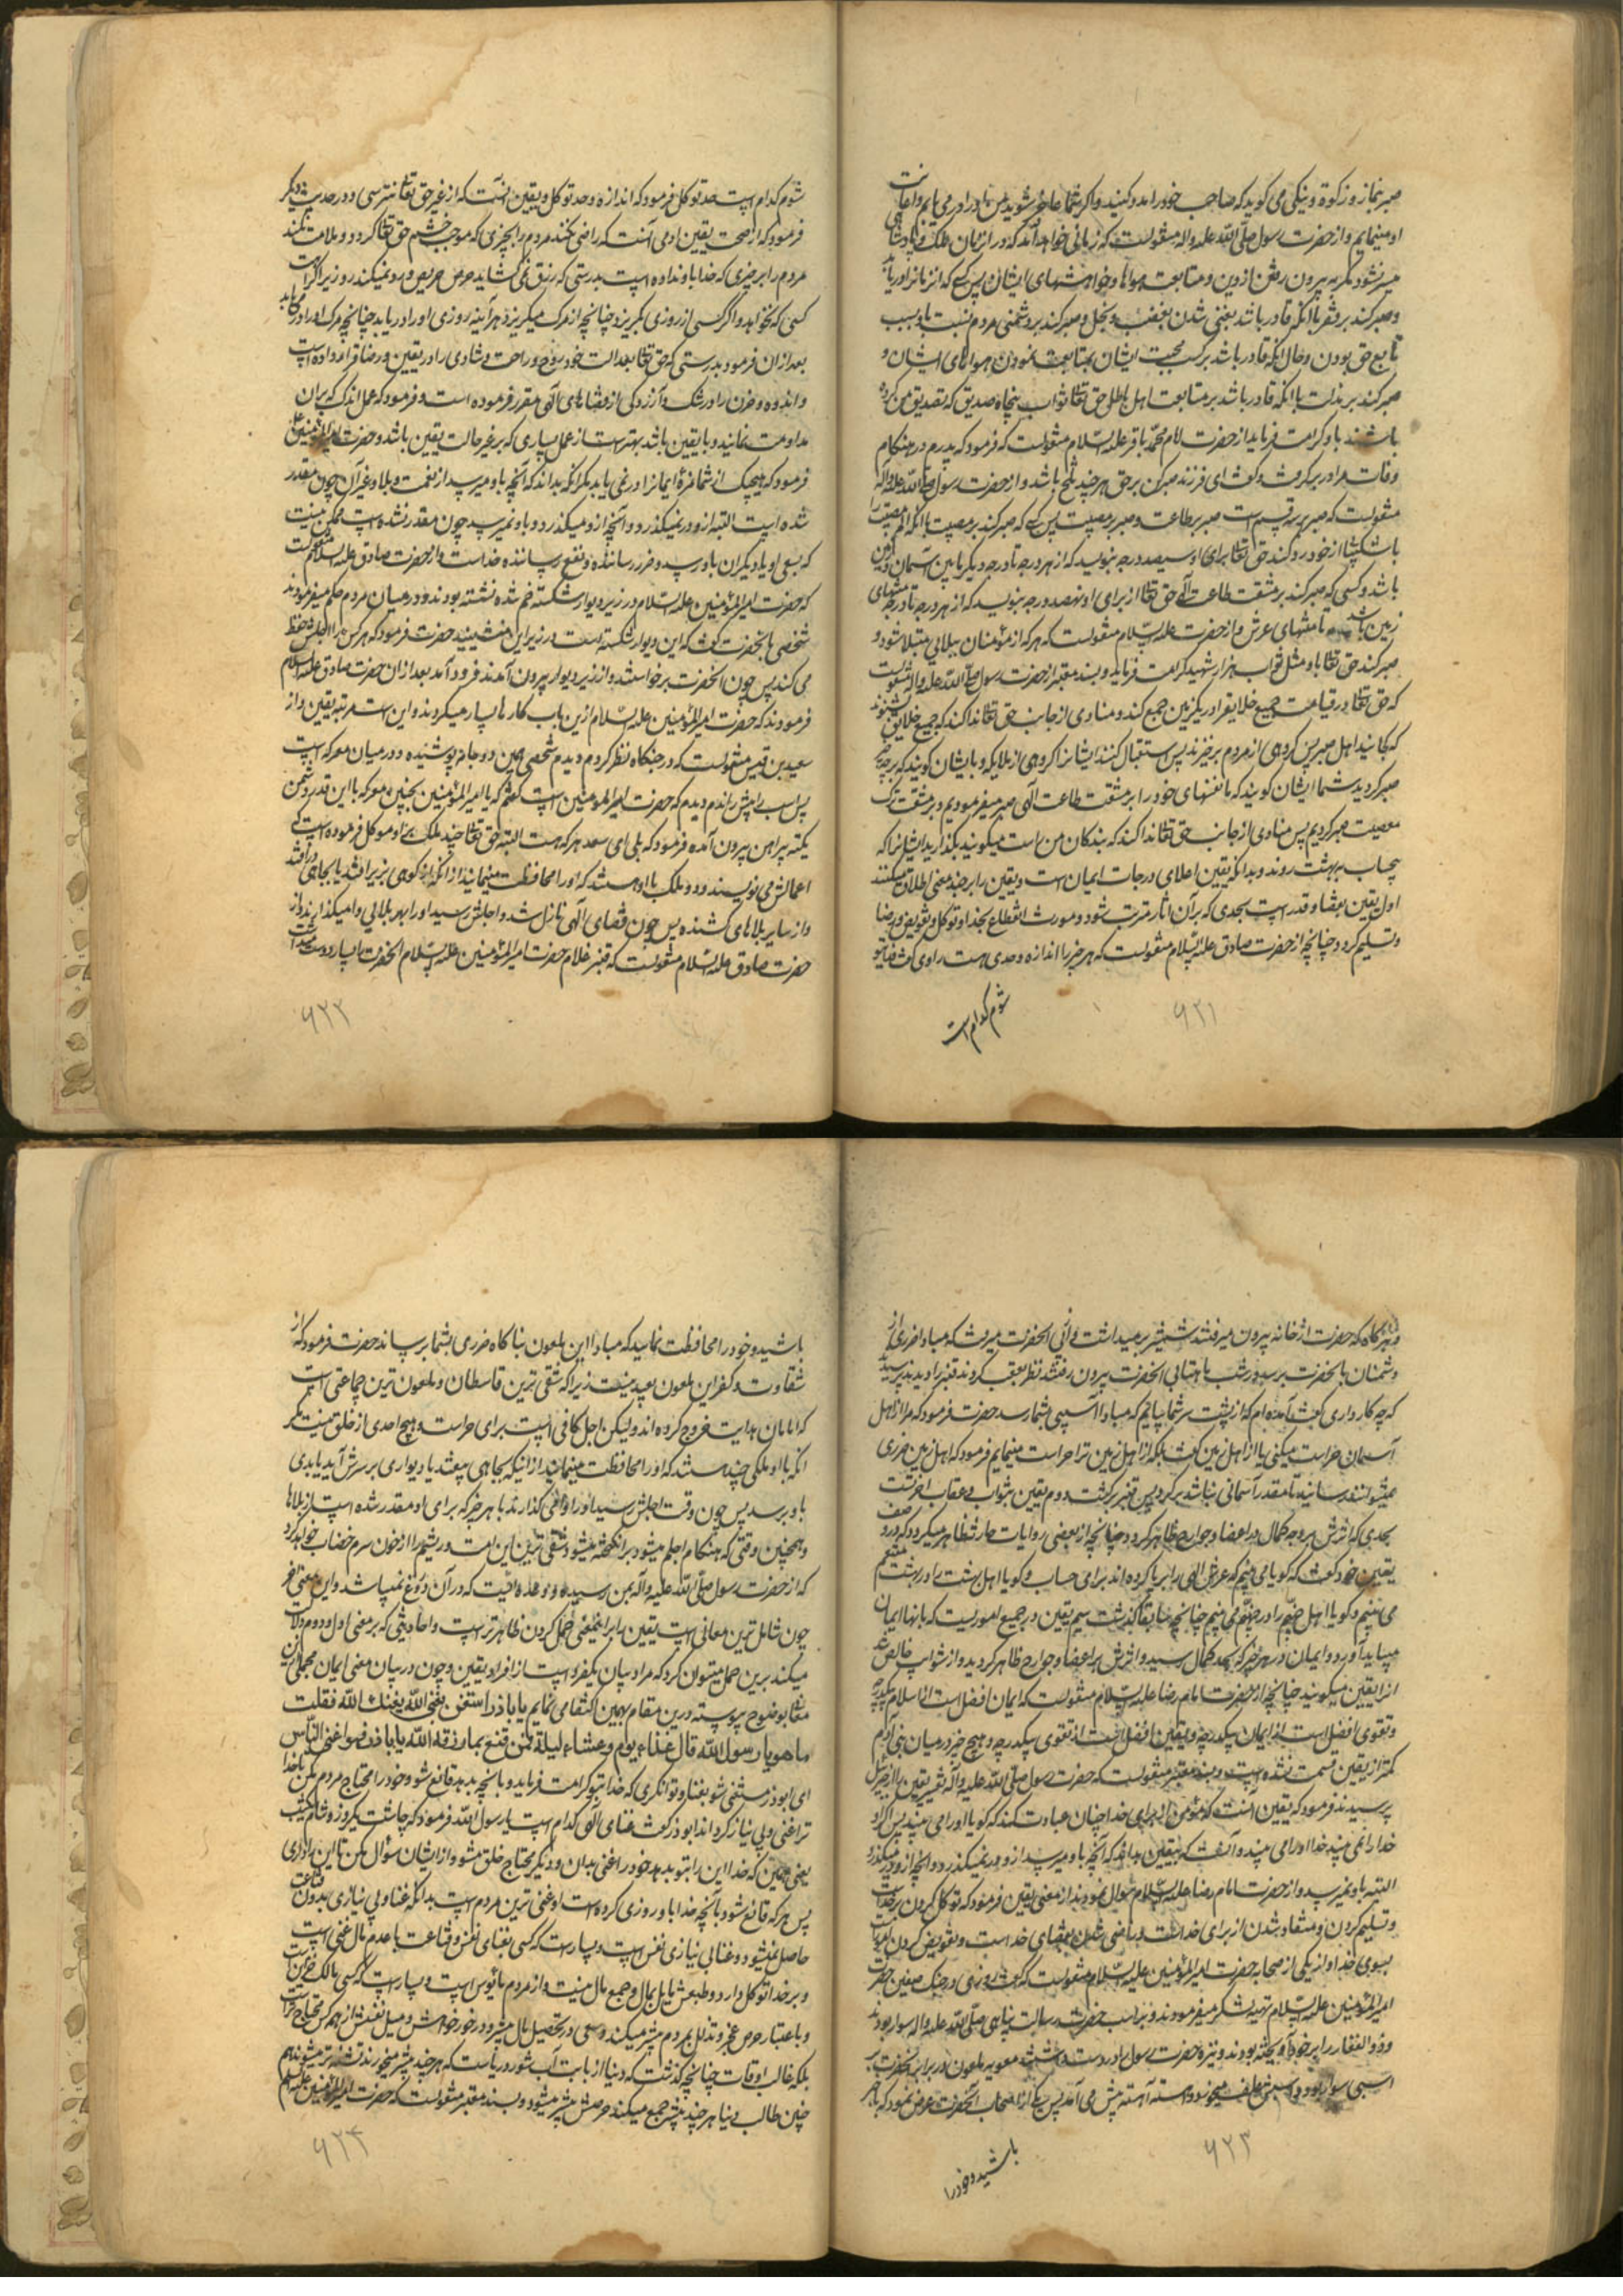 صبر بنماز و زکوة و نیکی می کوید که صاحب خود را مدد کنید و اکر شما عاجز شوید من او را در می یابم و اعانت
او مینمایم و از حضرت رسول صلی الله علیه واله منقولست که زمانی خواهد آمد که در ان زمان ملک و پادشاهی
میسر نشود مکر به بیرون رفتن از دین و متابعت هواها و خواهشهای ایشان پس کسی که آن زمانرا دریابد
و صبر کند بر فقر با آنکه قادر باشد بغنی شدن بغضب و بخل و صبر کند بر دشمنی مردم نسبت باو بسبب
تابع حق بودن و حال آنکه قادر باشد بر کسب محبت ایشان بمتابعت نمودن هواهای ایشان و
صبر کند بر مذلت با آنکه قادر باشد بر متابعت اهل باطل حق تعالی ثواب پنجاه صدیق که تصدیق من کرده
باشند باو کرامت فرماید از حضرت امام محمد باقر علیه السلام منقولست که فرمود که پدرم در هنکام
وفات مرا در بر کرفت و کفت ای فرزند صبر کن بر حق هر چند تلخ باشد و از حضرت رسول صلی الله علیه واله
منقولست که صبر بر سه قسم است صبر بر طاعت و صبر بر معصیت پس کسی که صبر کند بر مصیبت با آنکه الم مصیبت را
باشکیبا از خود رد کند حق تعالی برای او سیصد درجه بنویسد که از هر درجه تا درجه دیکر مابین آسمان و زمین
باشد و کسی که صبر کند بر مشقت طاعت الهی حق تعالی از برای او نهصد درجه بنویسد که از هر درجه تا درجه منتهای
زمین باشد تا منتهای عرش و از حضرت علیه السلام منقولست که هر که از مؤمنان ببلایی مبتلا شود و
صبر کند حق تعالی باو مثل ثواب هزار شهید کرامت فرماید و بسند معتبر از حضرت رسول صلی الله علیه واله منقولست
که حق تعالی در قیامت جمیع خلایق را در یکزمین جمع کند و منادی از جانب حق تعالی ندا کند که جمیع خلایق بشنوند
که کجایند اهل صبر پس کروهی از مردم برخیزند پس استقبال کنند ایشانرا کروهی از ملایکه و بایشان کویند که بر چه چیز
صبر کردید شما ایشان کویند که ما نفسهای خود را بر مشقت طاعت الهی صبر میفرمودیم و بر مشقت ترک
معصیت صبر کردیم پس منادی از جانب حق تعالی ندا کند که بندکان من راست میکویند بکذارید ایشانرا که
بیحساب ببهشت روند و بدانکه یقین اعلای درجات ایمان است و یقین را بر چند معنی اطلاق میکنند
اول یقین بقضا و قدر است بحدی که بر آن آثار مترتب شود و مورث انقطاع بخدا و توکل و تفویض و رضا
و تسلیم کردد چنانچه از حضرت صادق علیه السلام منقولست که هر چیز را اندازه و حدی هست راوی کفت فدای تو
شوم کدام است
۶۲۱
شوم کدام است حد توکل فرمود که اندازه و حد توکل و یقین آنست که از غیر حق تعالی نترسی و در حدیث دیکر
فرمود که از صحت یقین آدمی آنست که راضی نکند مردم را بچیزی که موجب خشم حق تعالی کردد و ملامت نکند
مردم را بر چیزی که خدا باو نداده است بدرستی که رزق نمی کشاید حرص حریص و رد نمیکند روزی را کراهت
کسی که نخواهد و اکر کسی از روزی بکریزد چنانچه از مرک میکریزد هرآینه روزی او را دریابد چنانچه مرک او را در می یابد
بعد از ان فرمود بدرستی که حق تعالی بعدالت خود روح و راحت و شادی را در یقین و رضا قرار داده است
و اندوه و حزن را در شک و آزردکی از قضاهای الهی مقرر فرموده است و فرمود که عمل اندک که بران
مداومت نمایند و با یقین باشد بهتر است از عمل بسیاری که بر غیر حالت یقین باشد و حضرت امیرالمؤمنین
فرمود که هیچیک از شما مزه ایمانرا در نمی یابد مکر آنکه بداند که آنچه باو میرسد از نعمت و بلا و غیر آن چون مقدر
شده است البته ازو در نمیکذرد و آنچه ازو میکذرد و باو نمیرسد چون مقدر نشده است ممکن نیست
که بسعی او یا دیکران باو رسد و ضرر رساننده و نفع رساننده خداست و از حضرت صادق علیه السلام منقولست
که حضرت امیر المؤمنین علیه السلام در زیر دیوار شکسته خم شده نشسته بودند و در میان مردم حکم میفرمودند
شخصی بآنحضرت کفت که این دیوار شکسته است در زیر این منشینید حضرت فرمود که هر کس را اجلش حفظ
می کند پس چون آنحضرت برخواستند و از زیر دیوار بیرون آمدند فرود آمد بعد از ان حضرت صادق علیه السلام
فرمودند که حضرت امیر المؤمنین علیه السلام ازین باب کارها بسیار میکردند و این است مرتبه یقین و از
سعید بن قیس منقولست که در جنکاه نظر کردم دیدم شخصی همین دو جامه پوشیده و در میان معرکه است
پس اسب را پیش راندم دیدم که حضرت امیر المؤمنین است کفتم که یا امیر المؤمنین بچنین معرکه با این قدر دشمن
یکته پیراهن بیرون آمده فرمود که بلی ای سعد هر که هست البته حق تعالی چند ملک برو موکل فرموده است که
اعمالش می نویسند و دو ملک با او هستند که او را محافظت مینمایند از آنکه از کوهی بزیر افتد یا بچاهی در افتد
و از سایر بلاهای کشنده پس چون قضای الهی نازل شد و اجلش رسید او را بهر بلایی وا میکذارند و از
حضرت صادق علیه السلام منقولست که قنبر غلام حضرت امیر المؤمنین علیه السلام آنحضرت را بسیار دوست میداشت
۶۲۲
و هرکاه که حضرت از خانه بیرون میرفتند شمشیر برمیداشت و از پی آنحضرت میرفت که مبادا ضرری از
دشمنان بآنحضرت برسد در شب ماهتابی آنحضرت بیرون رفتند نظر بعقب کردند قنبر را دیدند پرسیدند
که چه کار داری کفت آمده ام که از پشت سر شما بیایم که مبادا آسیبی بشما رسد حضرت فرمود که مرا از اهل
آسمان حراست میکنی یا از اهل زمین کفت بلکه از اهل زمین ترا حراست مینمایم فرمود که اهل زمین ضرری
نمیتوانند رسانید تا مقدر آسمانی نباشد برکرد پس قنبر برکشت دوم یقین بثواب و عقاب اخرتست
بحدی که اثرش بروجه کمال در اعضا و جوارح ظاهر کردد چنانچه از بعضی روایات حارثه ظاهر میکردد که در وصف
یقین خود کفت که کویا می بینم که عرش الهی را برپا کرده اند برای حساب و کویا اهل بهشت را در بهشت متنعم
می بینم و کویا اهل جهنم را در جهنم می بینم چنانچه سابقا کذشت سیم یقین در جمیع امور یست که بانها ایمان
میباید آورد و ایمان در هر چیز که بحد کمال رسید و اثرش بر اعضا و جوارح ظاهر کردید و از شوائب خالص شد
انرا یقین میکویند چنانچه از حضرت امام رضا علیه السلام منقولست که ایمان افضل است از اسلام بیکدرجه
و تقوی افضل است از ایمان بیکدرجه و یقین افضل است از تقوی بیکدرجه و هیچ چیز در میان بنی آدم
کمتر از یقین قسمت نشده است و بسند معتبر منقولست که حضرت رسول صلی الله علیه واله تفسیر یقین را از جبرئیل
پرسیدند فرمود که یقین آنست که مؤمن از برای خدا چنان عبادت کند که کویا او را می بیند پس اکر او
خدا را نمی بیند خدا او را می بیند و آنست که بیقین بداند که آنچه باو میرسد ازو در نمیکذرد و آنچه ازو در میکذرد
البته باو نمیرسد و از حضرت امام رضا علیه السلام سؤال نمودند از معنی یقین فرمود که توکل کردن بر خداست
و تسلیم کردن و منقاد شدن از برای خداست و راضی شدن بقضای خداست و تفویض کردن امور است
بسوی خدا و از یکی از صحابه حضرت امیر المؤمنین علیه السلام منقولست که کفت روزی در جنک صفین حضرت
امیر المؤمنین علیه السلام تهیه لشکر میفرمودند و بر اسب حضرت رسالت پناهی صلی الله علیه واله سوار بودند
و ذو الفقار را بر خود آویخته بودند و نیزه حضرت رسول در دست داشتند معویه ملعون در برابر آنحضرت بر
اسبی سوار بود و آهسته آهسته پیش می آمد پس یکی از اصحاب آنحضرت عرض نمود که با خبر
باشید و خود را
۶۲۳
باشید و خود را محافظت نمایید که مبادا این ملعون بناکاه ضرری بشما برساند حضرت فرمود که از
شقاوت و کفر این ملعون بعید نیست زیرا که شقی ترین قاسطان و ملعون ترین جماعتی است
که بر امامان هدایت خروج کرده اند ولیکن اجل کافی است برای حراست و هیچ احدی از خلق نیست مکر
آنکه با او ملکی چند هستند که او را محافظت مینمایند از اینکه بچاهی بیفتد یا دیواری بر سرش آید یا بدی
باو برسد پس چون وقت اجلش رسید او را وامی کذارند با هر چیز که برای او مقدر شده است از بلاها
و همچنین وقتی که هنکام اجلم میشود برانکیخته میشود شقی ترین این امت و ریشم را از خون سرم خضاب خواهد کرد
که از حضرت رسول صلی الله علیه واله بمن رسیده و وعده ایست که در آن دروغ نمیباشد و این معنی آخر
چون شامل ترین معانی است یقین را بر اینمعنی حمل کردن ظاهرتر است و احادیثی که بر معنی اول و دوم دلالت
میکند برین حمل میتوان کرد که مراد بیان یکفرد است از افراد یقین و چون در بیان معنی ایمان مجملی ازین
معنا بوضوح پیوسته درین مقام بهمین اکتفا می نمایم یا باذر استغن بغنی الله یغنك الله فقلت
ما هو یا رسول الله قال غداء یوم و عشاء لیلة فمن قنع بما رزقه الله یا باذر فهو اغنی الناس
ای ابوذر مستغنی شو بغنا و توانکری که خدا بتو کرامت فرماید و بآنچه بدهد قانع شو و خود را محتاج مردم مکن تا خدا
ترا غنی و بی نیاز کرداند ابوذر کفت غنای الهی کدام است یا رسول الله فرمود که چاشت یکروز و شام یکشب
یعنی همین که خدا این را بتو بدهد خود را غنی بدان و دیکر محتاج خلق مشو و از ایشان سؤال مکن تا این را داری
پس هر که قانع شود بآنچه خدا باو روزی کرده است او غنی ترین مردم است بدانکه غنا و بی نیازی بدون قناعت
حاصل نمیشود و غنا بی نیازی نفس است و بسیار است که کسی بغنای نفس و قناعت با عدم مال غنی است
و بر خدا توکل دارد و طبعش مایل بمال و جمع مال نیست و از مردم مأیوس است و بسیار است که کسی مالک خزاین است
و باعتبار حرص عجز و تذلل بمردم بیشتر میکند و سعی در تحصیل مال بیشتر و در خود خواهش و میل نفسش از همه کس محتاج تر است
بلکه غالب اوقات چنانچه کذشت که دنیا از بابت آب شور دریاست که هر چند بیشتر میخورند تشنه تر میشوند هم
چنین طالب دنیا هر چند بیشتر جمع میکند حرصش بیشتر میشود و بسند معتبر منقولست که حضرت امیر المؤمنین علیه السلام
۶۲۴